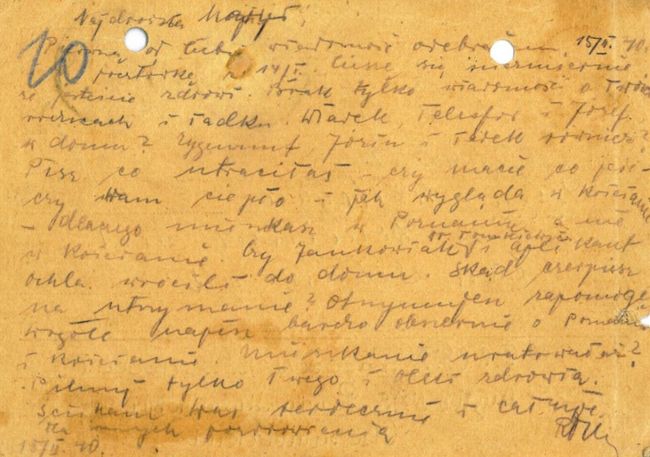 Najdroższa
15/II. 40.
10
od Ciebie wiadomość odebrałem
pocztówkę z 14/I. Cieszę się niezmiernie,
że jesteście zdrowi. Brak tylko wiadomości o Twoich
rodzicach i Tadku. Władek, Telesfor i Józef.
w domu? Zygmunt, Józin i również?
Pisz co utraciłaś – czy macie co jeść
czy Wam ciepło i jak wygląda w Kościanie
– dlaczego mieszkasz w Poznaniu a nie
w Kościanie. Czy Jankowiak i aplikant
Ochla wrócili do domu. Skąd czerpiesz
na utrzymanie? Otrzymujesz zapomogę
wogóle napisz bardzo obszernie o
i Kościanie. Mieszkanie uratowałaś?
Pilnuj tylko Twego i Oleś zdrowia.
Ściskam Was serdecznie i całuję.
Dla innych pozdrowienia
15/II. 40.